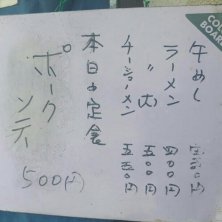 牛めし 五五〇円
ラーメン 四〇〇円
〃 大 五〇〇円
チャーシューメン 五五〇円
本日の定食
ポーク
ソテー
500円
COLO
BOARD